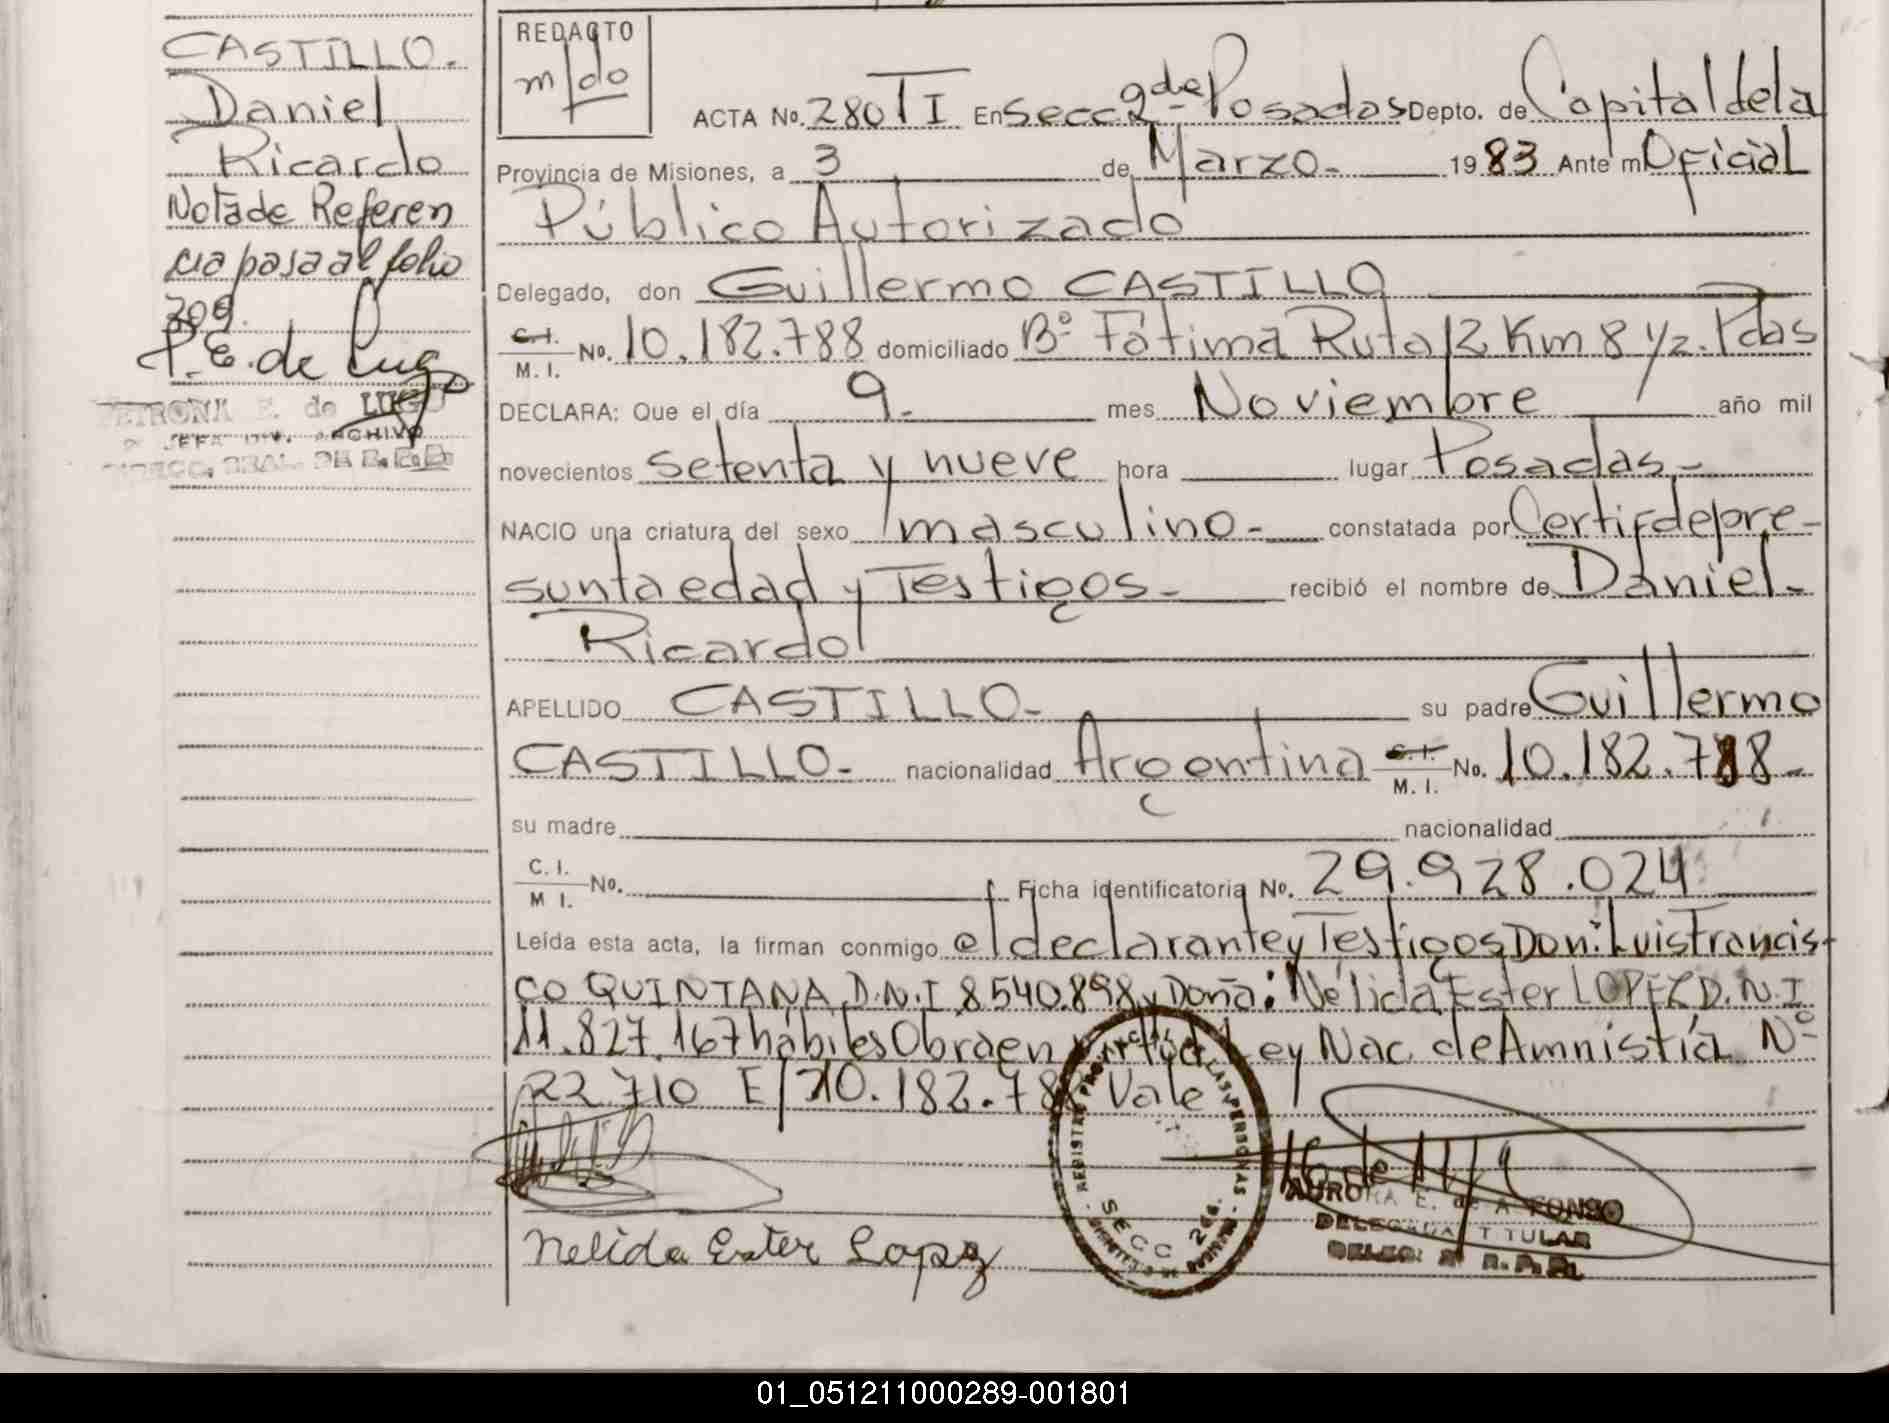 CASTILLO.
Daniel
Ricardo
Nota de Referen
cia pasa al folio
309.
P. E. de Lugo
PETRONA E. de LUGO
JEFA DIV. ARCHIVO
DIRECC. GRAL. DE R.
REDACTO
m/do
ACTA No. 280 T I En Secc 2da de Posadas Depto. de Capital de la
Provincia de Misiones, a 3 de Marzo. 1983 Ante mí Oficial
Público Autorizado
Delegado, don Guillermo CASTILLO
C.I. M. I. No. 10.182.788 domiciliado Bº Fátima Ruta 12 Km 8 1/2. Pdas
DECLARA: Que el día 9. mes Noviembre año mil
novecientos setenta y nueve hora lugar Posadas-
NACIO una criatura del sexo masculino- constatada por Certif de pre-
sunta edad y Testigos- recibió el nombre de Daniel-
Ricardo
APELLIDO CASTILLO- su padre Guillermo
CASTILLO- nacionalidad Argentina C.I. M. I. No. 10.182.788-
su madre nacionalidad
C. I. M I. No. Ficha identificatoria No. 29.928.024
Leída esta acta, la firman conmigo el declarante y Testigos Don: Luis Francis-
co QUINTANA D.N.I 8.540.898 y Doña: Nélida Ester LOPEZ D.N.I
11.827.167 hábiles Obra en virtud Ley Nac. de Amnistía Nº
22.710 E/ 10.182.788 Vale
REGISTRO PROVINCIAL DE LAS PERSONAS
SECC 2da.
MISIONES
AURORA E. de AFONSO
DELEGADA TITULAR
DELEG. 2ª R.P.P.
Nelida Ester Lopez
01_051211000289-001801